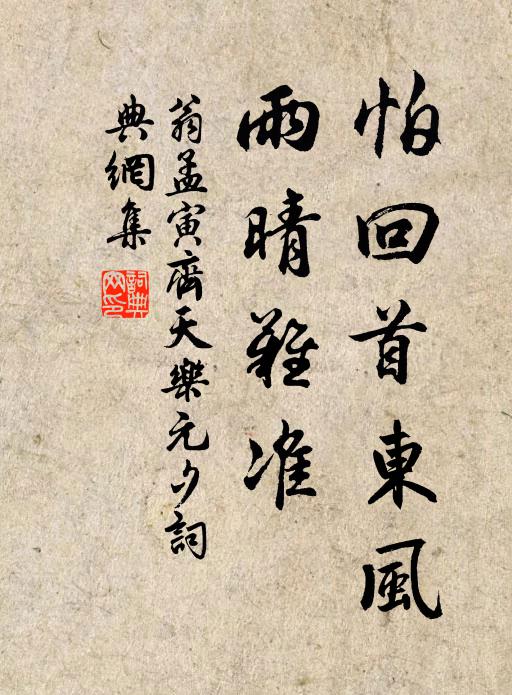 怕回首東風
雨晴難准
翁孟寅齊天樂元夕詞
典網集
詞典網印